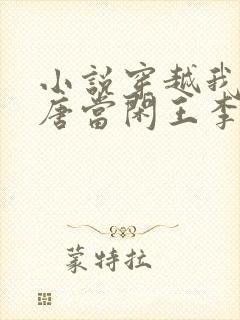 小説穿越我
唐當閑王李
蒙特拉